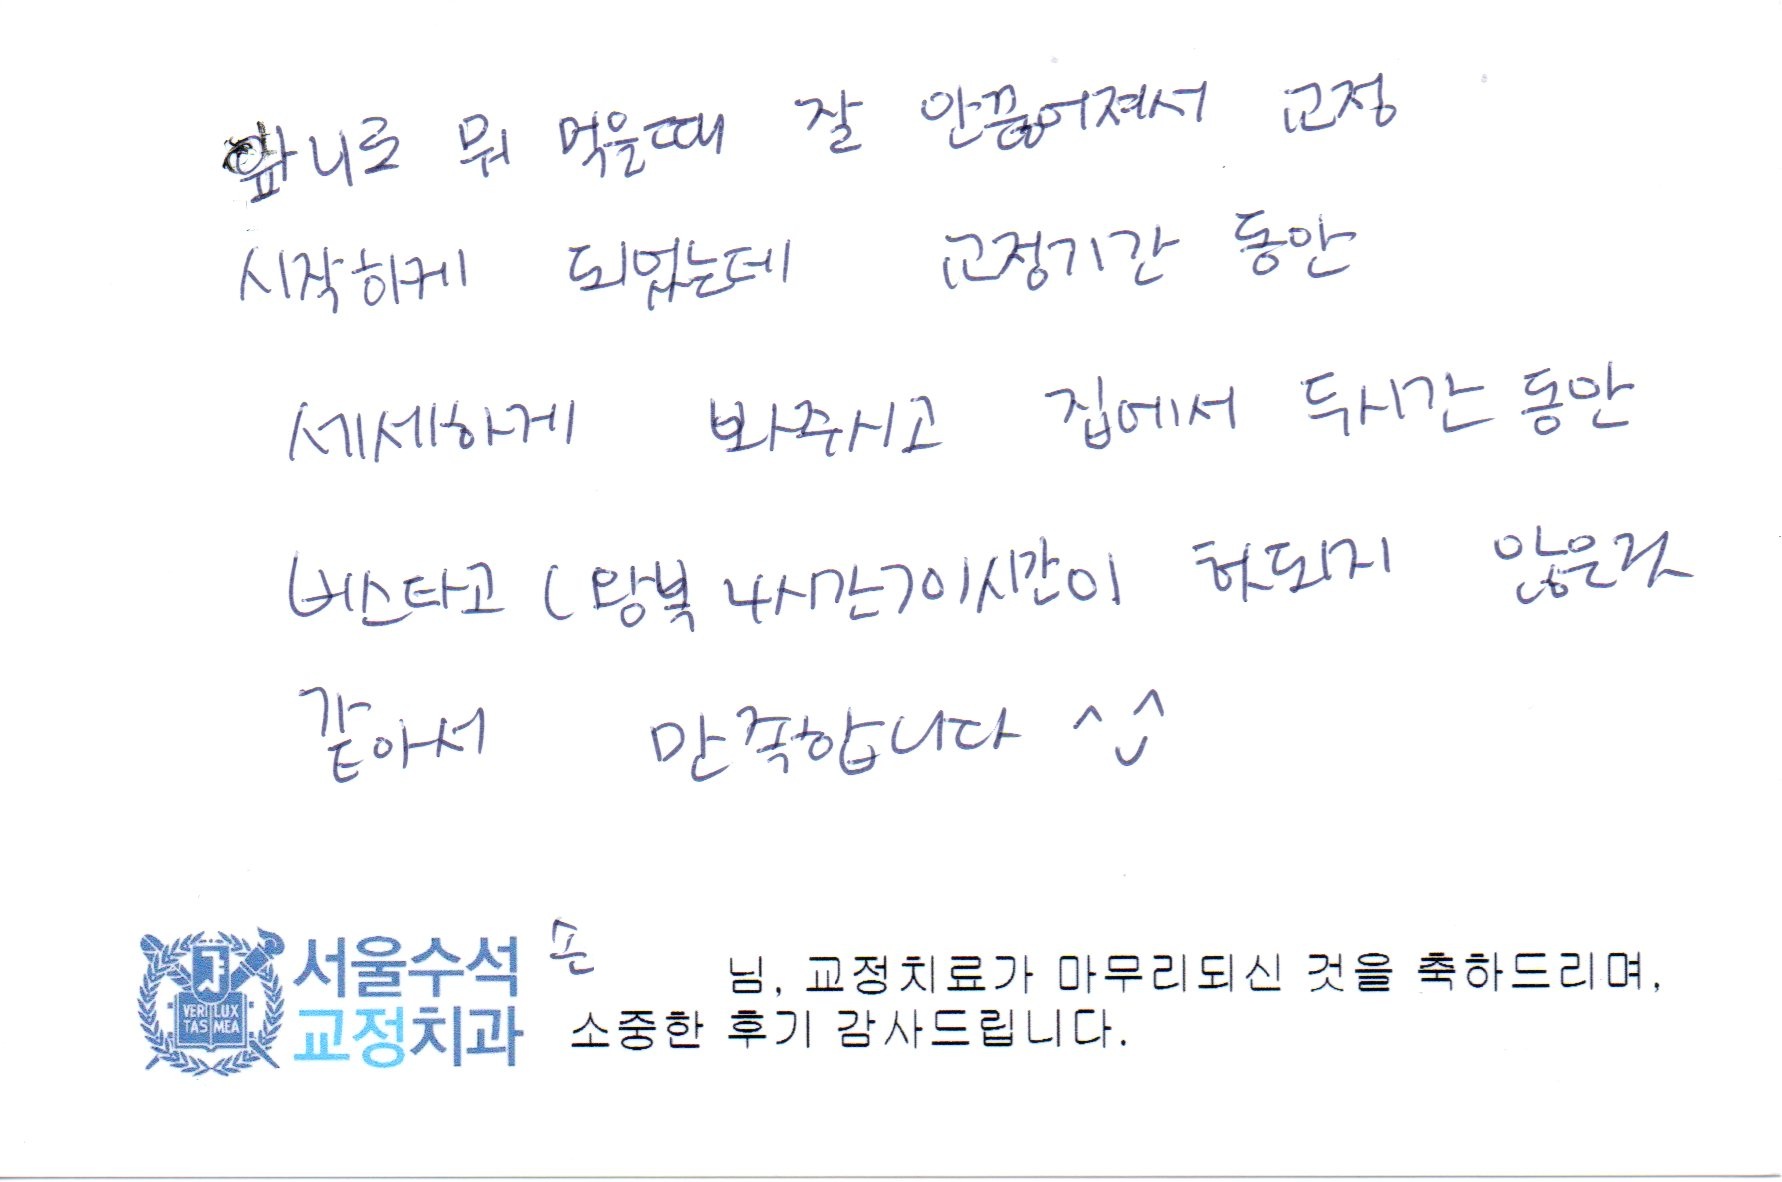 앞니로 뭐 먹을때 잘 안끊어져서 교정
시작하게 되었는데 교정기간 동안
세세하게 봐주시고 집에서 두시간 동안
버스타고 (왕복 4시간) 이시간이 헛되지 않은것
같아서 만족합니다 ^^
서울수석
교정치과
VERI LUX
TAS MEA
손 님, 교정치료가 마무리되신 것을 축하드리며,
소중한 후기 감사드립니다.